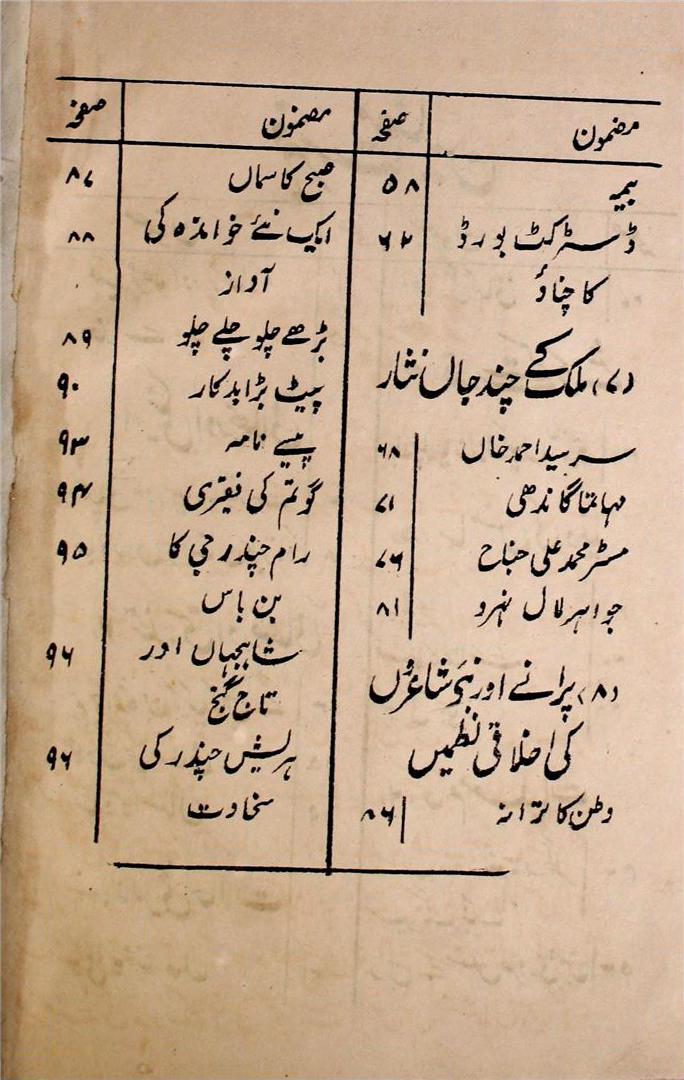 مضمون صفحہ
بیمہ ۵۸
ڈسٹرکٹ بورڈ ۶۲
کا چناؤ
(۷) ملک کے چند جاں نثار
سر سید احمد خاں ۶۸
مہاتما گاندھی ۷۱
مسٹر محمد علی جناح ۷۶
جواہر لال نہرو ۸۱
(۸) پرانے اور نئے شاعروں
کی اخلاقی نظمیں
وطن کا ترانہ ۸۶
مضمون صفحہ
صبح کا سماں ۸۷
ایک نئے خواندہ کی ۸۸
آواز
بڑھے چلو چلے چلو ۸۹
پیٹ بڑا بدکار ۹۰
پیسے نامہ ۹۳
گوتم کی فقیری ۹۴
رام چندر جی کا ۹۵
بن باس
شاہجہاں اور ۹۶
تاج گنج
ہریش چندر کی ۹۶
سخاوت